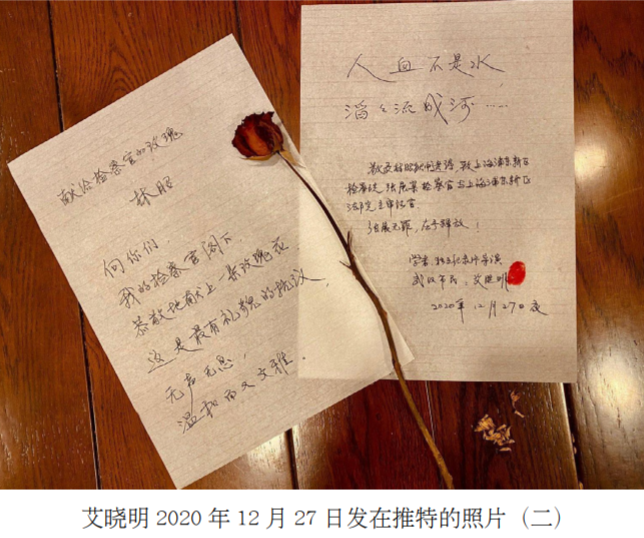 献给检察官的玫瑰
林昭
向你们，
我的检察官阁下
恭敬地献上一朵玫瑰花
这是最有礼貌的抗议
无声无息，
温和而又文雅．
人血不是水
滔々流成河……
林昭 上海浦东新区
检察院 检察官与上海浦东新区
法院主审法官．
张展无罪， 释放！
学者、独立纪录片导演
武汉市民，艾晓明
2020年12月27日夜
艾晓明 2020 年 12 月 27 日发在推特的照片（二）